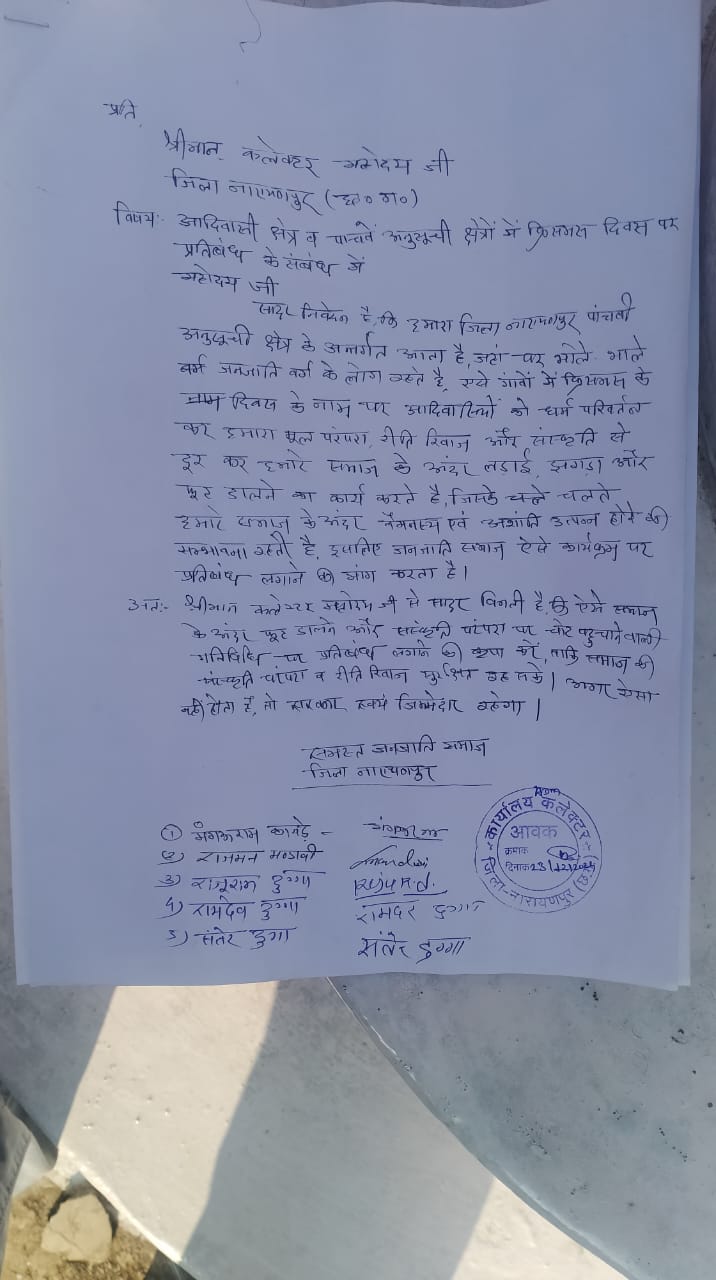 प्रति,
श्रीमान् कलेक्टर महोदय जी
जिला नारायणपुर (छ०ग०)
विषय:- आदिवासी क्षेत्र व पाचवें अनुसूची क्षेत्रों में क्रिसमस दिवस पर
प्रतिबंध के संबंध में
महोदय जी
सादर निवेदन है, कि हमारा जिला नारायणपुर पांचवी
अनुसूची क्षेत्र के अन्तर्गत आता है, जहां पर भोले भाले
वर्ग जनजाति वर्ग के लोग रहते है, ऐसे गांवों में क्रिसमस के
दिवस के नाम पर आदिवासियों को धर्म परिवर्तन
कर हमारा मूल परंपरा, रीति रिवाज और संस्कृति से
दूर कर हमारे समाज के अंदर लड़ाई, झगड़ा और
फूट डालने का कार्य करते है, जिसके चलते चलते
हमारे समाज के अंदर वैमनस्य एवं अशांति उत्पन्न होने की
सम्भावना रहती है, इसलिए जनजाति समाज ऐसे कार्यक्रम पर
प्रतिबंध लगाने की मांग करता है।
अत:- श्रीमान कलेक्टर महोदय जी से सादर विनती है, कि ऐसे समाज
के अंदर फूट डालने और संस्कृति परंपरा पर चोट पहुचाने वाली
गतिविधि पर प्रतिबंध लगाने की कृपा करे, ताकि समाज की
संस्कृति परंपरा व रीति रिवाज सुरक्षित रह सके। अगर ऐसा
नहीं होता है, तो सरकार स्वयं जिम्मेदार रहेगा।
समस्त जनजाति समाज
जिला नारायणपुर
① मंगऊराम कावड़े -
2) राजमन मण्डावी
3) राजूराम दुग्गा
4) रामदेव दुग्गा रामदेर दुग्गा
5) संतेर दुग्गा संतेर दुग्गा
कार्यालय कलेक्टर
आवक
क्रमांक
दिनांक 23/12/2024
जिला-नारायणपुर (छ.ग.)